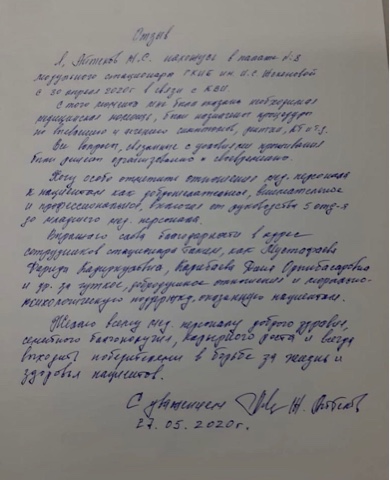 Отзыв
Я, М.С. нахожусь в палате №3
модульного стационара ГКИБ им. И.С. Жекеновой
с 30 апреля 2020г в связи с КВИ.
С того момента мне была оказана необходимая
медицинская помощь, были назначены процедуры
по и симптомов, КТ и т.д.
Все вопросы, связанные с условиями проживания
были решены организованно и своевременно.
Могу особо отметить отношения мед. персонала
к пациентам как доброжелательное, внимательное
и профессиональное, включая от руководства 5 отд-я
до младшего мед. персонала.
Выражаю слова благодарности в адрес
сотрудников стационара таким, как Мустафаева
Фарида, Карибаева Орынбасаровна
и др. за чуткое, добродушное отношение и морально-
психологическую поддержку, оказанную пациентам.
Желаю всему мед. персоналу доброго здравия,
семейного благополучия, карьерного роста и всегда
выходить победителями в борьбе за жизнь и
здоровья пациентов.
С уважением
27.05.2020г.